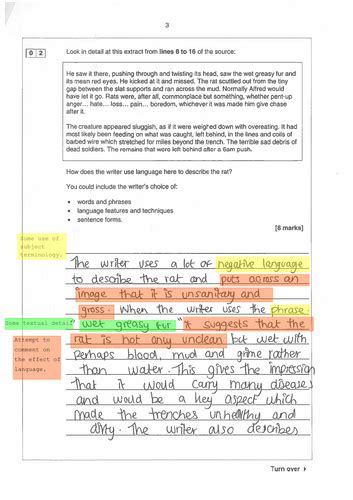 3
0 2 Look in detail at this extract from lines 8 to 16 of the source:
He saw it there, pushing through and twisting its head, saw the wet greasy fur and
its mean red eyes. He kicked at it and missed. The rat scuttled out from the tiny
gap between the slat supports and ran across the mud. Normally Alfred would
have let it go. Rats were, after all, commonplace but something, whether pent-up
anger… hate… loss… pain… boredom, whichever it was made him give chase
after it.
The creature appeared sluggish, as if it were weighed down with overeating. It had
most likely been feeding on what was caught, left behind, in the lines and coils of
barbed wire which stretched for miles beyond the trench. The terrible sad debris of
dead soldiers. The remains that were left behind after a 6am push.
How does the writer use language here to describe the rat?
You could include the writer's choice of:
• words and phrases
• language features and techniques
• sentence forms.
[8 marks]
Some use of
subject
terminology.
The writer uses a lot of negative language
to describe the rat and puts across an
image that it is unsanitary and
gross. When the writer uses the phrase
Some textual detail
"wet greasy fur" it suggests that the
Attempt to
comment on
the effect of
language.
rat is not any unclean but wet with
perhaps blood, mud and grime rather
than water. This gives the impression
that it would carry many diseases
and would be a key aspect which
made the trenches unhealthy and
dirty. The writer also describes
Turn over ▸